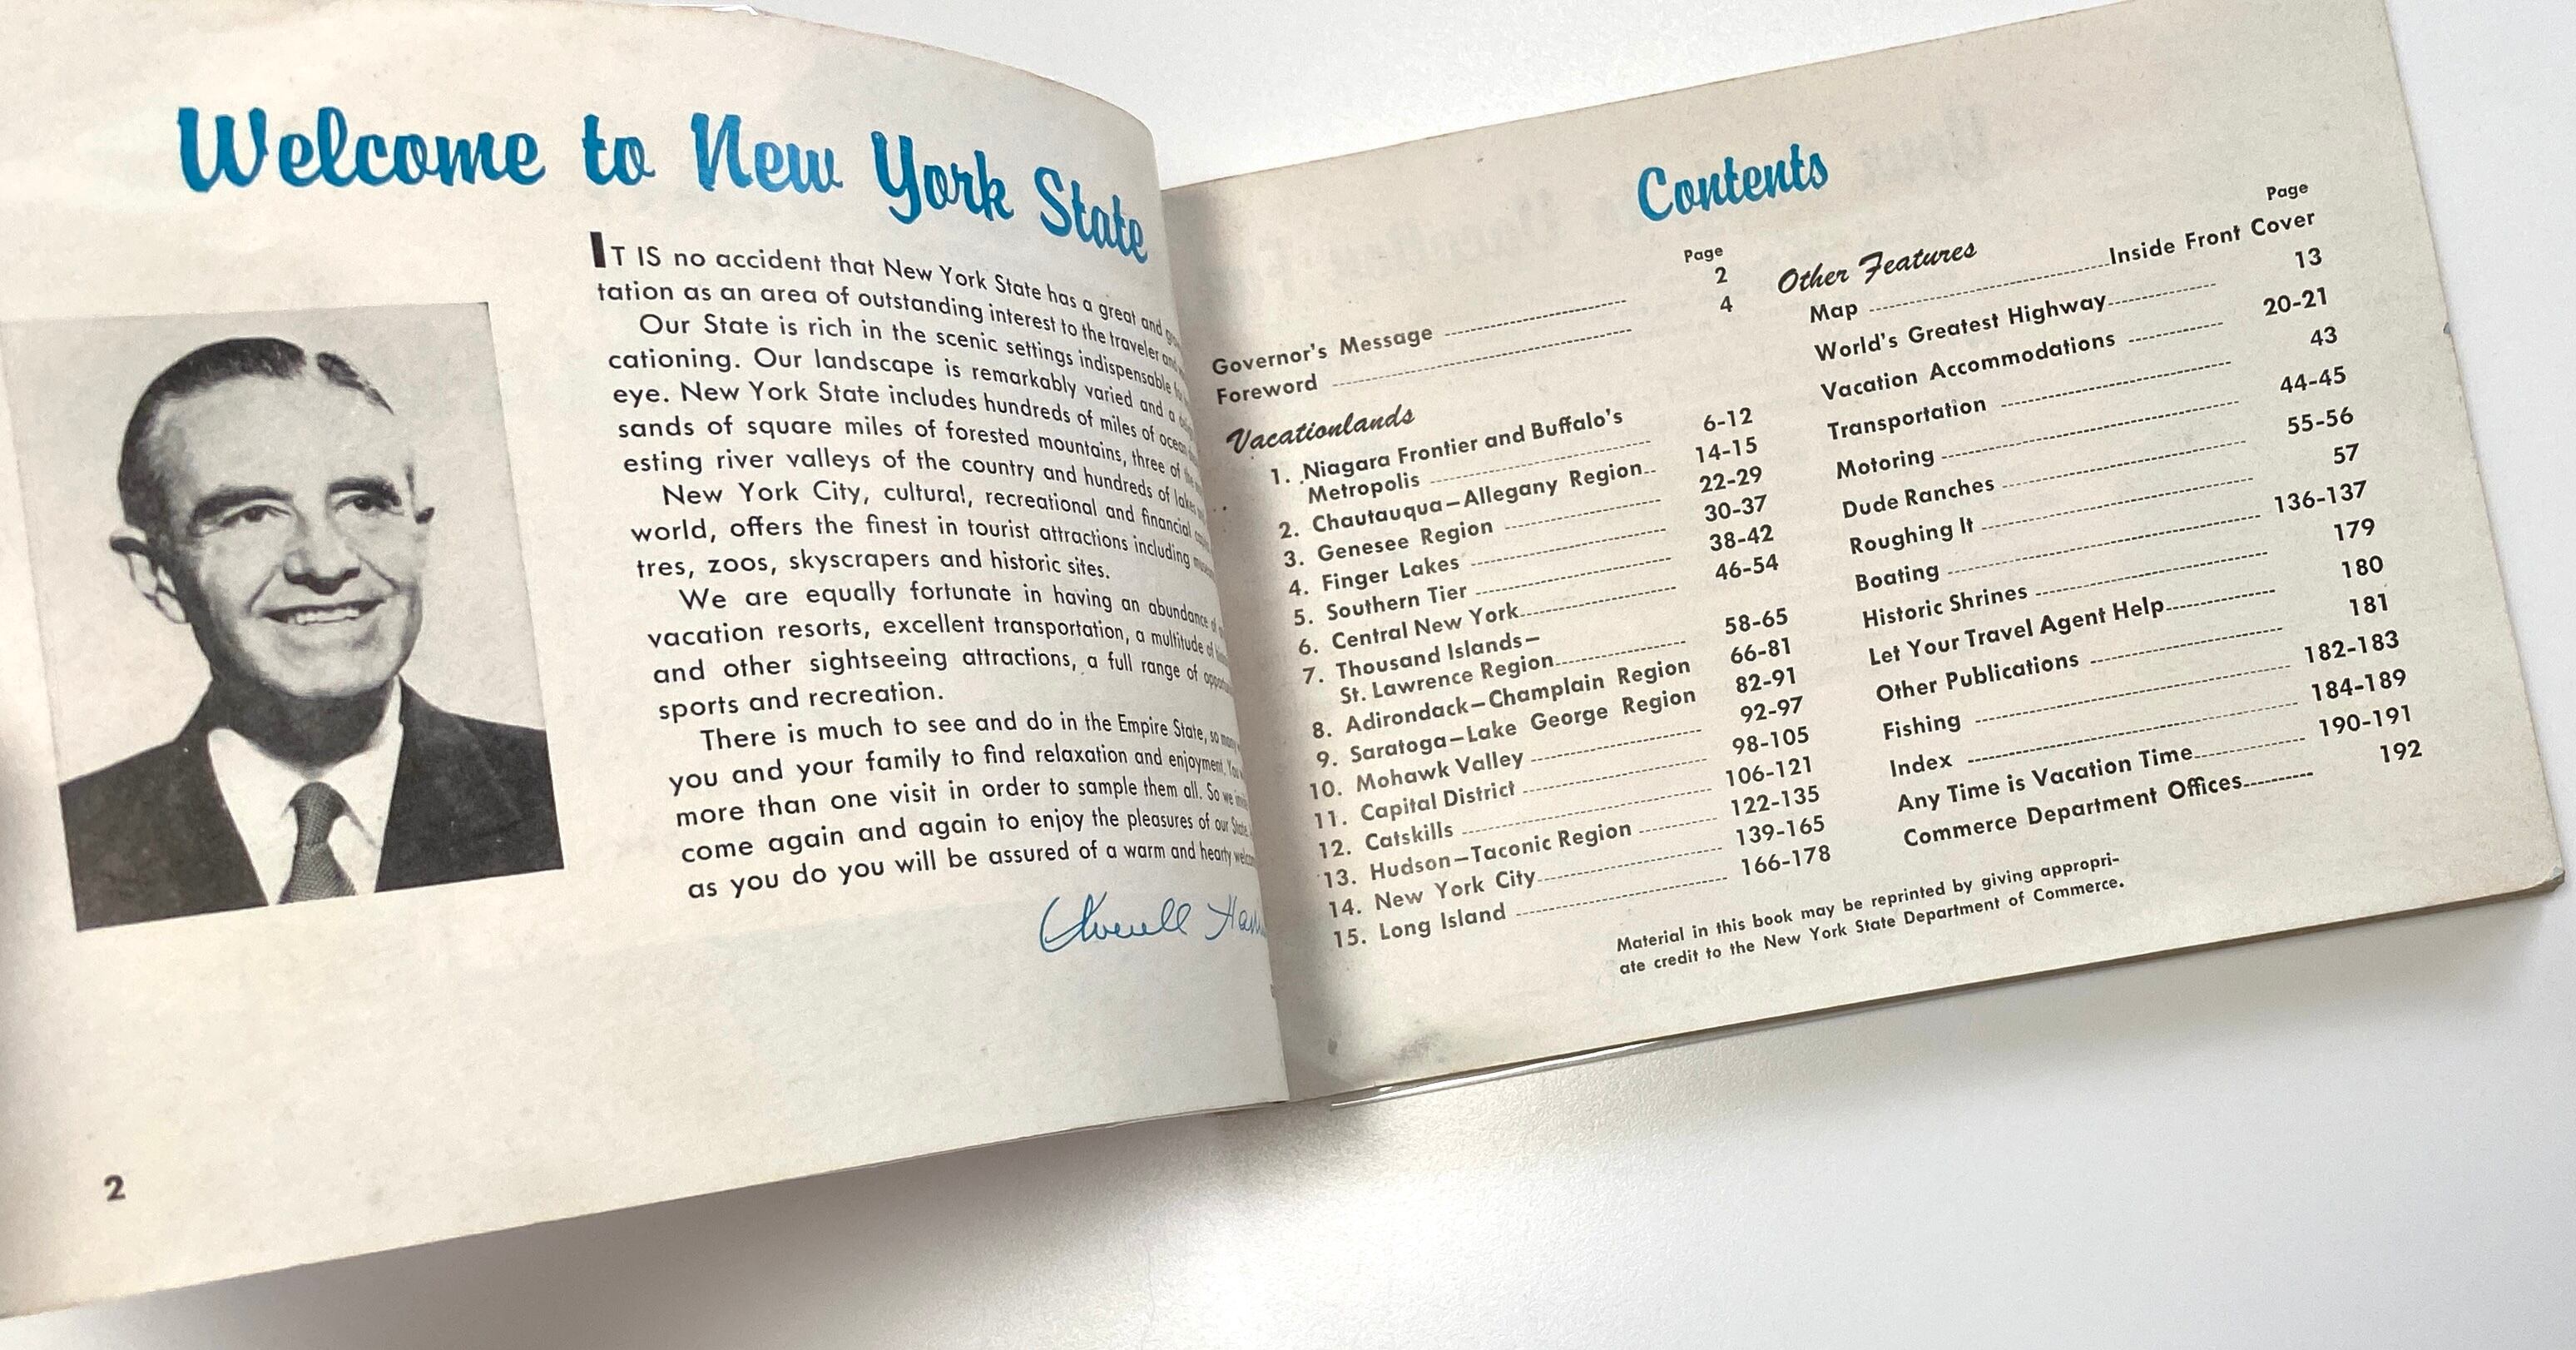 Welcome to New York State
IT IS no accident that New York State has a great and
tation as an area of outstanding interest to the traveler and
Our State is rich in the scenic settings indispensable
cationing. Our landscape is remarkably varied and a
eye. New York State includes hundreds of miles of ocean
sands of square miles of forested mountains, three of the
esting river valleys of the country and hundreds of lakes
New York City, cultural, recreational and financial
world, offers the finest in tourist attractions including
tres, zoos, skyscrapers and historic sites.
We are equally fortunate in having an abundance of
vacation resorts, excellent transportation, a multitude of
and other sightseeing attractions, a full range of
sports and recreation.
There is much to see and do in the Empire State, so many
you and your family to find relaxation and enjoyment. You
more than one visit in order to sample them all. So we
come again and again to enjoy the pleasures of our State.
as you do you will be assured of a warm and hearty
Averell
2
Contents
Page
Governor's Message 2
Foreword 4
Vacationlands
1. Niagara Frontier and Buffalo's
Metropolis 6-12
2. Chautauqua—Allegany Region 14-15
3. Genesee Region 22-29
4. Finger Lakes 30-37
5. Southern Tier 38-42
6. Central New York 46-54
7. Thousand Islands—
St. Lawrence Region 58-65
8. Adirondack—Champlain Region 66-81
9. Saratoga—Lake George Region 82-91
10. Mohawk Valley 92-97
11. Capital District 98-105
12. Catskills 106-121
13. Hudson—Taconic Region 122-135
14. New York City 139-165
15. Long Island 166-178
Page
Other Features
Map Inside Front Cover
World's Greatest Highway 13
Vacation Accommodations 20-21
Transportation 43
Motoring 44-45
Dude Ranches 55-56
Roughing It 57
Boating 136-137
Historic Shrines 179
Let Your Travel Agent Help 180
Other Publications 181
Fishing 182-183
Index 184-189
Any Time is Vacation Time 190-191
Commerce Department Offices 192
Material in this book may be reprinted by giving appropri-
ate credit to the New York State Department of Commerce.